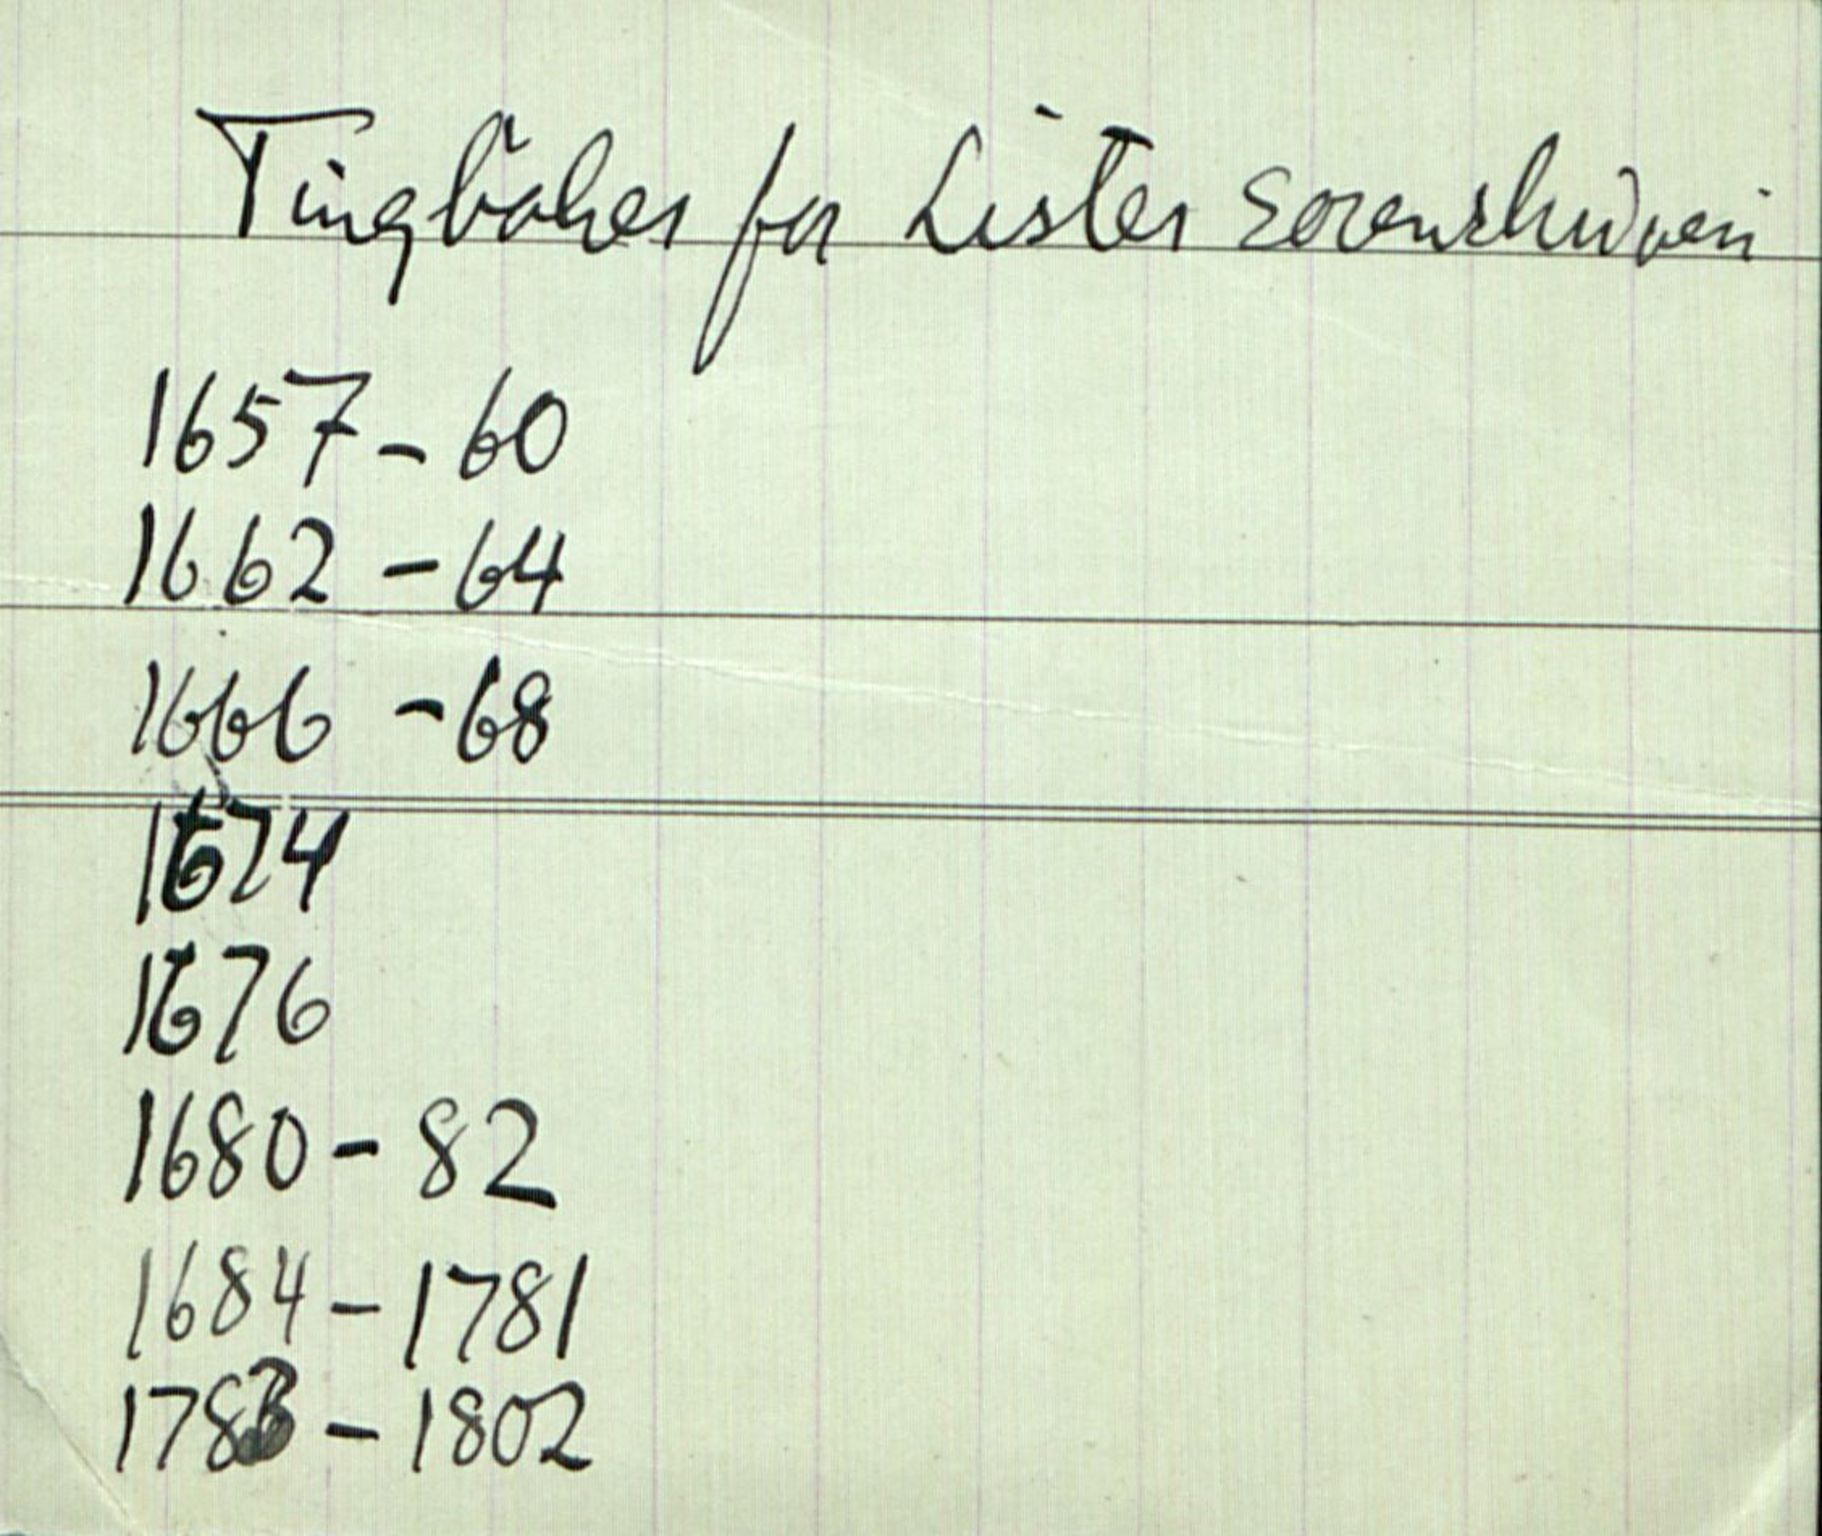 Tingbøker for Lister Sorenskriveri
1657 - 60
1662 - 64
1666 - 68
1674
1676
1680 - 82
1684 - 1781
1783 - 1802